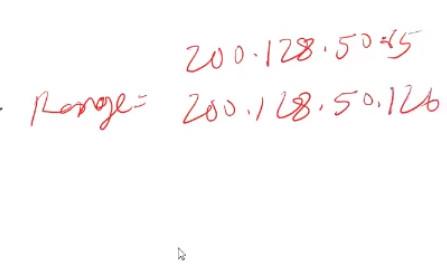 200.128.50.65
Range= 200.128.50.126